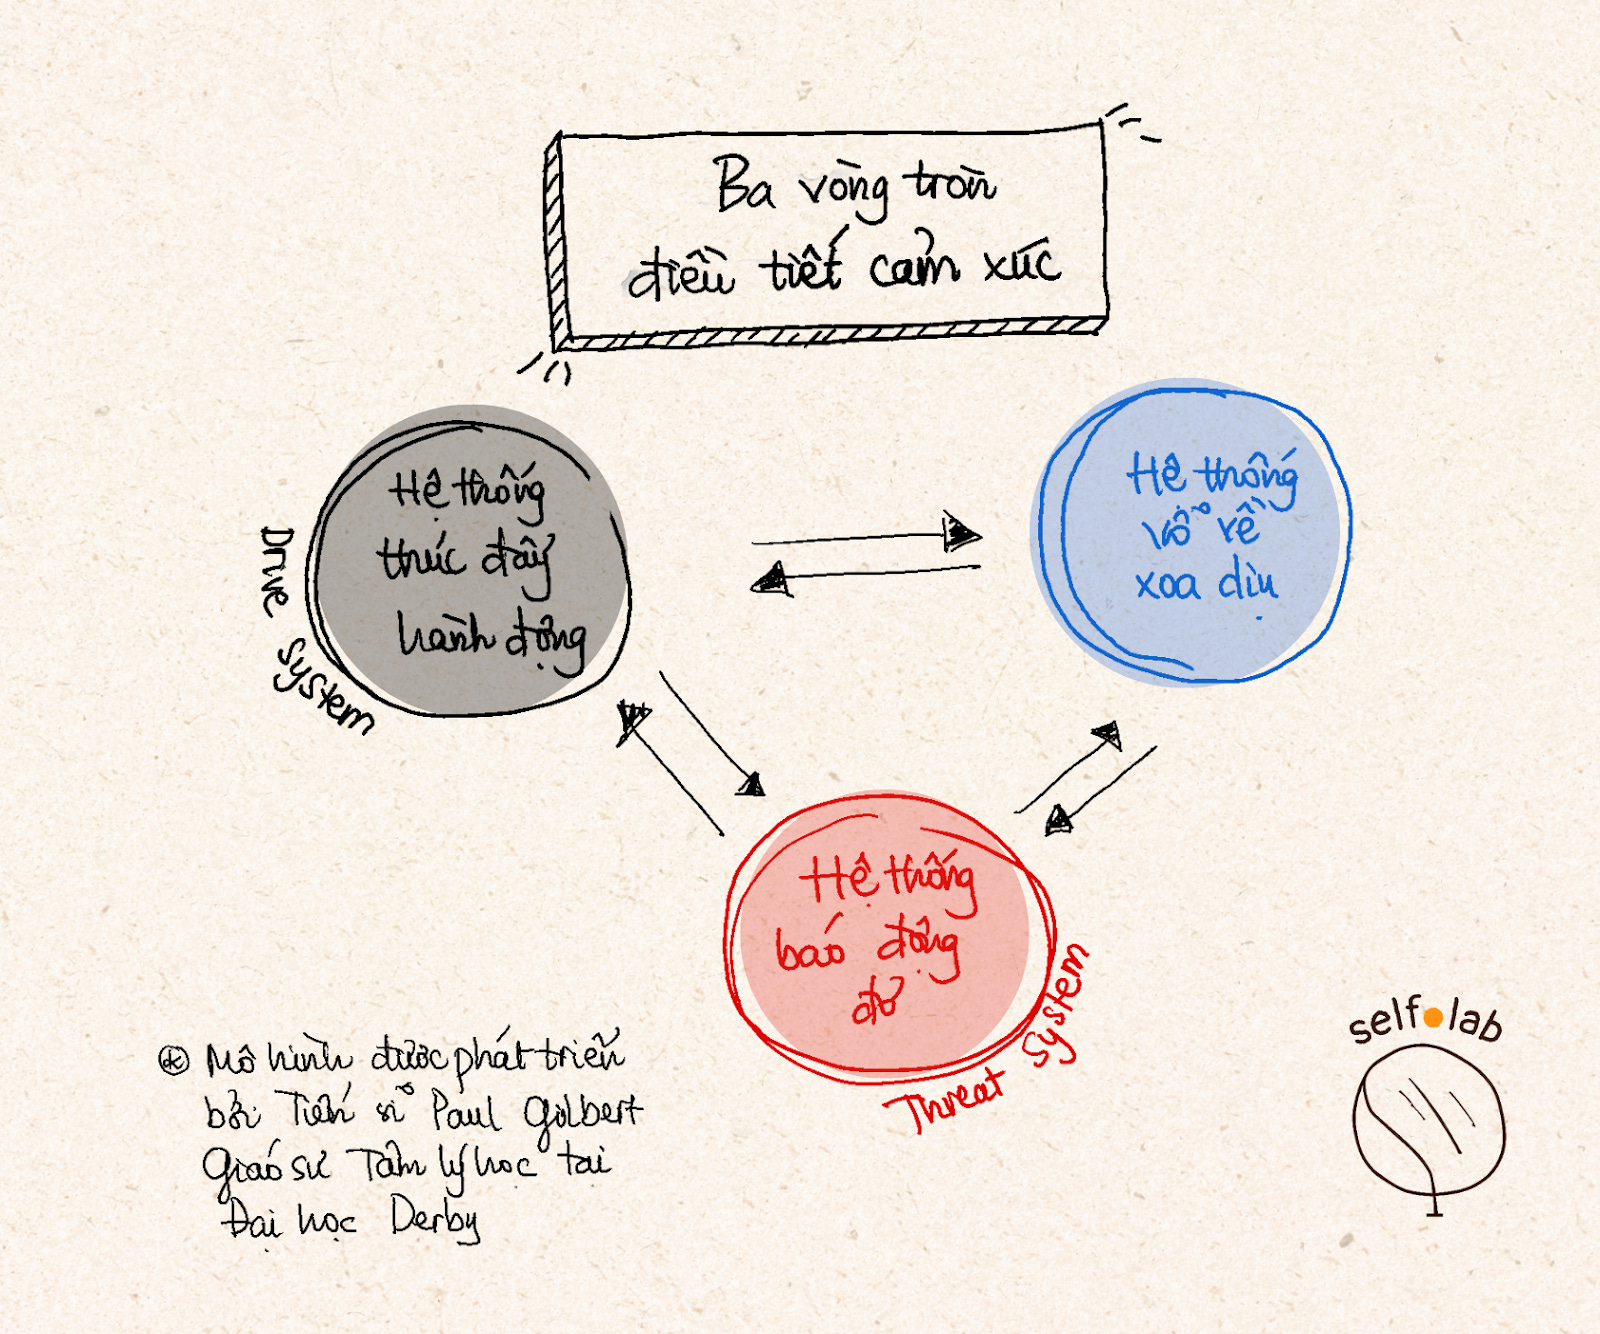 Ba vòng tròn
điều tiết cảm xúc
Hệ thống
thúc đẩy
hành động
Drive System
Hệ thống
vỗ về
xoa dịu
Hệ thống
báo động
đỏ
Threat System
* Mô hình được phát triển
bởi Tiến sĩ Paul Gilbert
Giáo sư Tâm lý học tại
Đại học Derby
self lab